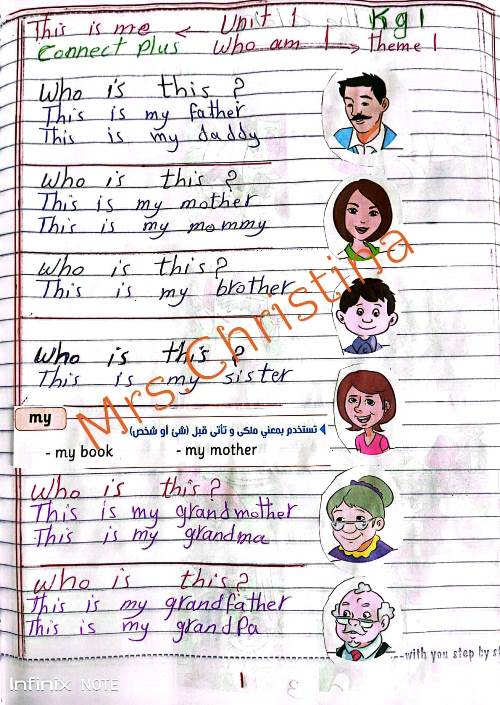 This is me ← Unit 1 Kg 1
Connect Plus Who am I → Theme 1
Who is this ?
This is my father
This is my daddy
Who is this ?
This is my mother
This is my mommy
Who is this?
This is my brother
Who is this ?
This is my sister
my
تستخدم بمعني ملكى و تأتى قبل (شئ أو شخص)
- my book - my mother
Who is this?
This is my grandmother
This is my grandma
Who is this?
This is my grandfather
This is my grandpa
--with you step by st
1
Infinix NOTE
Mrs.Christina